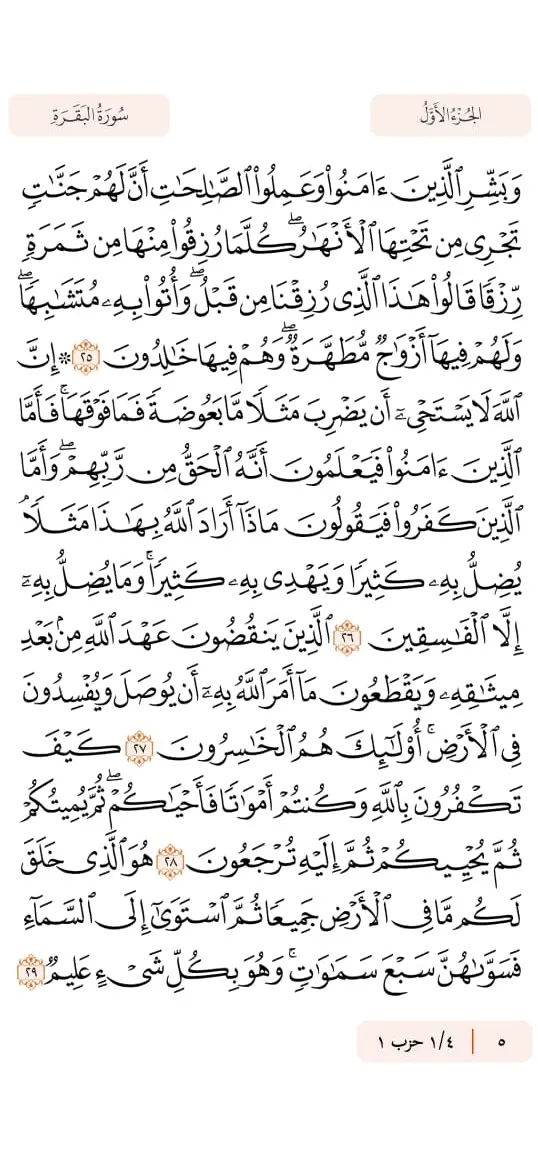 الجُزْءُ الأَوَّلُ
سُورَةُ البَقَرَةِ
وَبَشِّرِ ٱلَّذِينَ ءَامَنُوا۟ وَعَمِلُوا۟ ٱلصَّـٰلِحَـٰتِ أَنَّ لَهُمْ جَنَّـٰتٍ
تَجْرِى مِن تَحْتِهَا ٱلْأَنْهَـٰرُ ۖ كُلَّمَا رُزِقُوا۟ مِنْهَا مِن ثَمَرَةٍ
رِّزْقًا قَالُوا۟ هَـٰذَا ٱلَّذِى رُزِقْنَا مِن قَبْلُ ۖ وَأُتُوا۟ بِهِۦ مُتَشَـٰبِهًا ۖ
وَلَهُمْ فِيهَآ أَزْوَٰجٌ مُّطَهَّرَةٌ ۖ وَهُمْ فِيهَا خَـٰلِدُونَ ٢٥ ۞ إِنَّ
ٱللَّهَ لَا يَسْتَحْىِۦٓ أَن يَضْرِبَ مَثَلًا مَّا بَعُوضَةً فَمَا فَوْقَهَا ۚ فَأَمَّا
ٱلَّذِينَ ءَامَنُوا۟ فَيَعْلَمُونَ أَنَّهُ ٱلْحَقُّ مِن رَّبِّهِمْ ۖ وَأَمَّا
ٱلَّذِينَ كَفَرُوا۟ فَيَقُولُونَ مَاذَآ أَرَادَ ٱللَّهُ بِهَـٰذَا مَثَلًا ۘ
يُضِلُّ بِهِۦ كَثِيرًا وَيَهْدِى بِهِۦ كَثِيرًا ۚ وَمَا يُضِلُّ بِهِۦٓ
إِلَّا ٱلْفَـٰسِقِينَ ٢٦ ٱلَّذِينَ يَنقُضُونَ عَهْدَ ٱللَّهِ مِنۢ بَعْدِ
مِيثَـٰقِهِۦ وَيَقْطَعُونَ مَآ أَمَرَ ٱللَّهُ بِهِۦٓ أَن يُوصَلَ وَيُفْسِدُونَ
فِى ٱلْأَرْضِ ۚ أُو۟لَـٰٓئِكَ هُمُ ٱلْخَـٰسِرُونَ ٢٧ كَيْفَ
تَكْفُرُونَ بِٱللَّهِ وَكُنتُمْ أَمْوَٰتًا فَأَحْيَـٰكُمْ ۖ ثُمَّ يُمِيتُكُمْ
ثُمَّ يُحْيِيكُمْ ثُمَّ إِلَيْهِ تُرْجَعُونَ ٢٨ هُوَ ٱلَّذِى خَلَقَ
لَكُم مَّا فِى ٱلْأَرْضِ جَمِيعًا ثُمَّ ٱسْتَوَىٰٓ إِلَى ٱلسَّمَآءِ
فَسَوَّىٰهُنَّ سَبْعَ سَمَـٰوَٰتٍ ۚ وَهُوَ بِكُلِّ شَىْءٍ عَلِيمٌ ٢٩
٥ | ١/٤ حزب ١